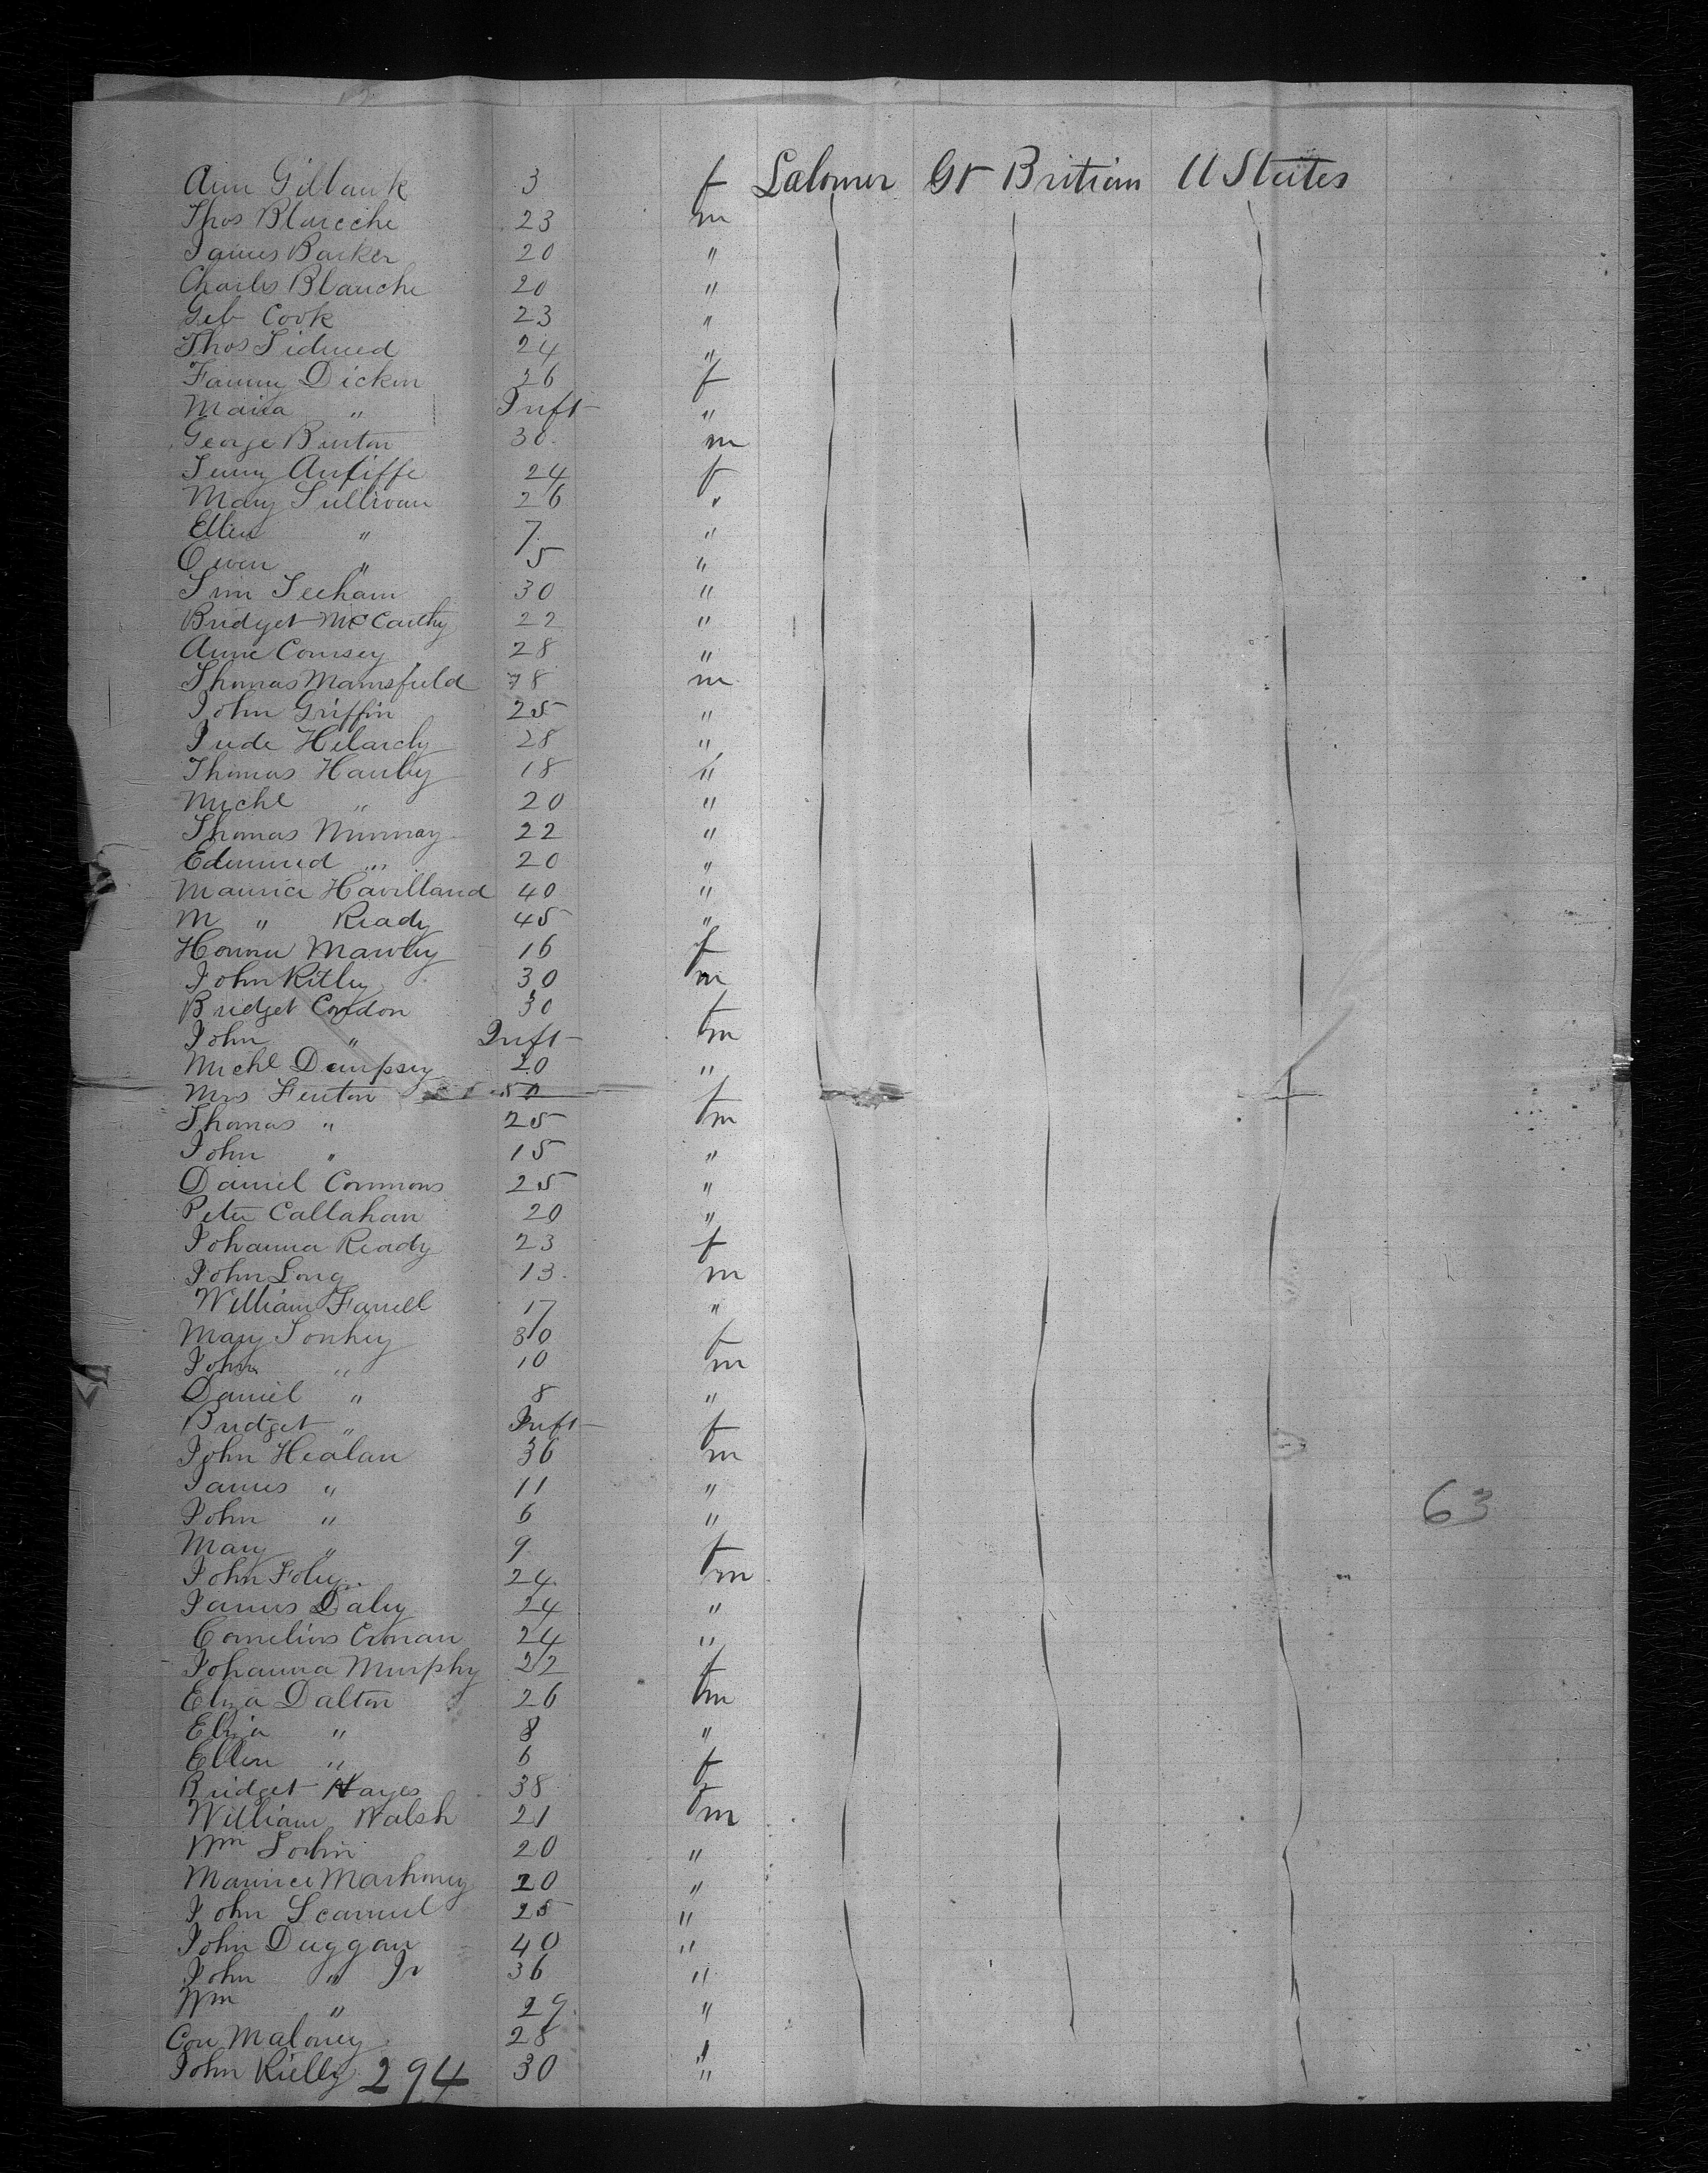 Ann Gilbank 3 f Labourer Gt Britian U States
Thos Blaeche 23 m
James Barker 20 "
Charles Blanche 20 "
Geb Cook 23 "
Thos 24 "
Fanny Dickin 26 f
Maria " Inft "
George Binton 30 m
Jenny 24 f
Mary Sullivan 26 "
Ellen " 7 "
Owen " 5 "
30 "
Bridget McCarthy 22 "
Anne Comsey 28 "
Thomas Mamsfield 78 m
John Griffin 25 "
28 "
Thomas Hanby 18 "
Michl " 20 "
Thomas Murray 22 "
Edmund " 20 "
Maurice Havilland 40 "
M " Ready 45 "
16 f
John Ritly 30 m
Bridget Condon 30 f
John " Inft m
Michl Dempsey 20 "
Mrs Fenton 50 f
Thomas " 25 m
John " 15 "
Daniel Commons 25 "
Peter Callahan 20 "
Johanna Ready 23 f
John Long 13 m
William Farrell 17 "
Mary 30 f
John " 10 m
Daniel " 8 "
Bridget " Inft f
John Healan 36 m
James " 11 "
John " 6 " 63
Mary " 9 f
John Foley 24 m
James Daley 24 "
Cornelius Cronan 24 "
Johanna Murphy 22 f
Eliza Dalton 26 m
Eliza " 8 "
Ellen " 6 f
Bridget Hayes 38 f
William Walsh 21 m
Wm 20 "
Maurice Marhoney 20 "
John Scannel 25 "
John Duggan 40 "
John " Jr 36 "
Wm " 29 "
Con Maloney 28 "
John Rielly 294 30 "